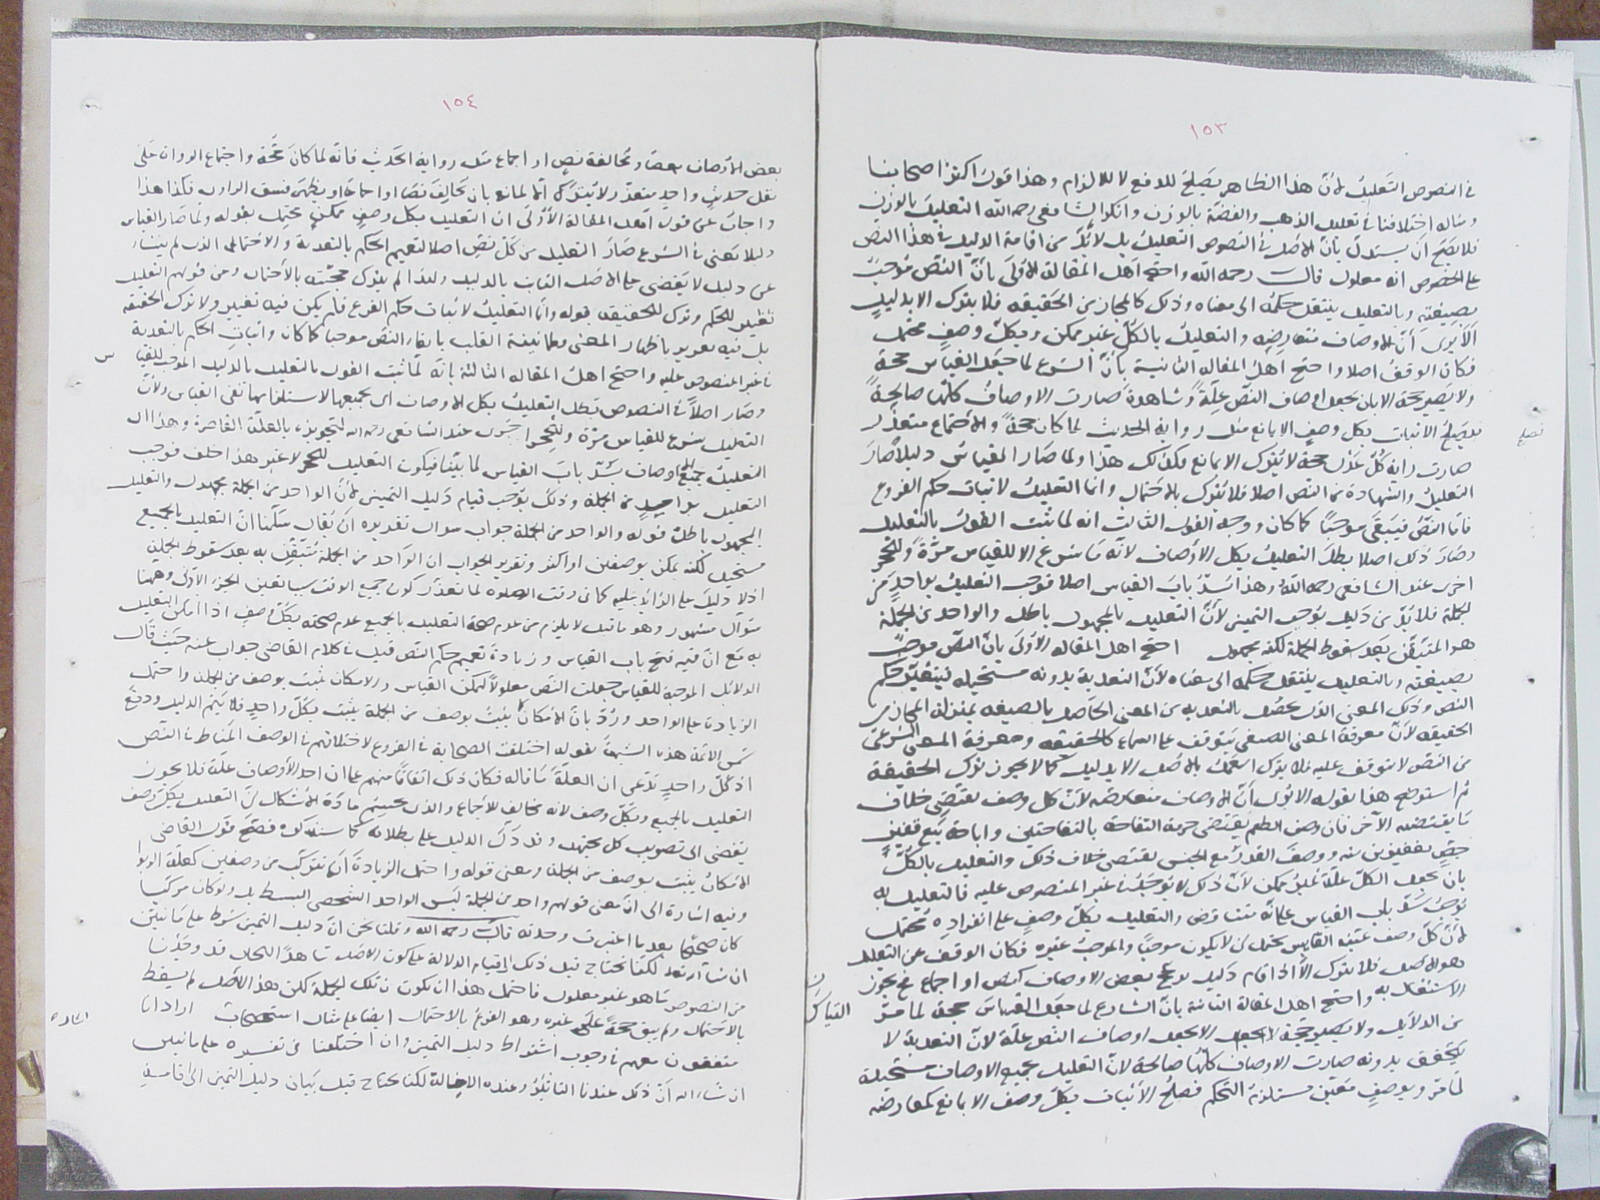 ١٥٣
في النصوص التعليل لأن هذا الظاهر يصلح للدفع لا للالزام وهذا قول اكثر اصحابنا
ومثاله اختلافنا في تعليل الذهب والفضة بالوزن وانكر الشافعي رحمه الله التعليل بالوزن
فلا يصح ان يستدل بأن الاصل في النصوص التعليل بل لابد من اقامة الدليل في هذا النص
على الخصوص انه معلول قال رحمه الله واحتج اهل المقالة الاولى بأن النص موجب
بصيغته وبالتعليل ينتقل حكمه الى معناه وذلك كالمجاز من الحقيقه فلا يترك الا بدليل
ألا يرى أن الاوصاف متعارضه والتعليل بالكل غير ممكن وبكل وصف محتمل
فكان الوقف اصلا واحتج اهل المقاله الثانية بأن الشرع لما جعل القياس حجة
ولا يصير حجة الا بان يجعل اوصاف النص علة وشاهدة صارت الاوصاف كلها صالحة
فيصلح الاثبات بكل وصف الا بمانع مثل رواية الحديث لما كان حجة والاجتماع متعذر
صارت رواية كل عدل حجة لا تترك الا بمانع فكذلك هذا ولما صار القياس دليلا صار
التعليل والشهادة من النص اصلا فلا يترك بالاحتمال وانما التعليل لاثبات حكم الفروع
فأما النص فيبقى موجبا كما كان ووجه القول الثالث انه لما ثبت القول بالتعليل
وصار ذلك اصلا بطل التعليل بكل الأوصاف لأنه ما شرع الا للقياس مرة وللحجر
اخرى عند الشافعي رحمه الله وهذا يسد باب القياس اصلا فوجب التعليل بواحد من
الجملة فلا بد من دليل يوجب التمييز لأن التعليل بالمجهول باطل والواحد من الجملة
هو المتيقن بعد سقوط الجملة لكنه مجهول احتج اهل المقاله الاولى بأن النص موجب
بصيغته وبالتعليل ينتقل حكمه الى معناه لأن التعدية بدونه مستحيله فيتغير حكم
النص وذلك المعنى الذي يحصل بالتعدية من المعنى الحاصل بالصيغه بمنزلة المجاز من
الحقيقه لأن معرفة المعنى الصيغي يتوقف على السماع كالحقيقه ومعرفة المعنى الشرعي
من النص لا يتوقف عليه فلا يترك العمل بالاصل الا بدليل كما لا يجوز ترك الحقيقة
ثم استوضح هذا بقوله الا ترى أن الاوصاف متعارضه لأن كل وصف يقتضي خلاف
ما يقتضيه الآخر فان وصف الطعم يقتضي حرمة التفاحة بالتفاحتين واباحة بيع قفيز
جص بقفيزين منه ووصف القدر مع الجنس يقتضي خلاف ذلك والتعليل بالكل
بان يجعل الكل علة غير ممكن لأن ذلك لا يوجد في غير المنصوص عليه فالتعليل به
يوجب سد باب القياس على انه متناقض والتعليل بكل وصف على انفراده محتمل
لأن كل وصف عينه القايس يحتمل ان لا يكون موجبا والموجب غيره فكان الوقف عن التعليل
هو الاصل فلا يترك الا اذا قام دليل يرجح بعض الاوصاف كنص او اجماع فح يجوز
الاشتغال به واحتج اهل المقالة الثانية بأن الشارع لما جعل القياس حجة لما مر
من الدلائل ولا يصير حجة الا بجعل اوصاف النص علة لأن التعدية لا
يتحقق بدونه صارت الاوصاف كلها صالحة لأن التعليل بجميع الاوصاف مستحيلة
لما مر وبوصف معين مستلزمة التحكم فصلح الاثبات بكل وصف الا بمانع كمعارضه
القياس
١٥٤
بعض الأوصاف بعضا ومخالفة نص او اجماع مثل رواية الحديث فانه لما كان حجة واجتماع الرواة على
نقل حديث واحد متعذر لا يترك الا لمانع بان خالف نصا او اجماعا او يظهر فسق الراوي فكذا هذا
واجاب على قول اهل المقالة الأولى ان التعليل بكل وصف ممكن محتمل بقوله ولما صار القياس
دليلا يعني في الشرع صار التعليل من كل نص اصلا لتعميم الحكم بالتعدية والاحتمال الذي لم ينشأ
عن دليل لا يقتضي على الاصل الثابت بالدليل ولهذا لم يترك حجيته بالاحتمال ومن قولهم التعليل
تغيير للحكم وترك للحقيقه بقوله وانما التعليل لاثبات حكم الفرع فلم يكن فيه تغيير ولا ترك الحقيقه
بل فيه تقرير باظهار المعنى وطمانينة القلب بابقاء النص موجبا كما كان واثبات الحكم بالتعدية
في غير المنصوص عليه واحتج اهل المقاله الثالثة بانه لما ثبت القول بالتعليل بالدليل الموجب للقياس
وصار اصلا في النصوص بطل التعليل بكل الاوصاف اي بجميعها لاستلزامها نفي القياس ولأن
التعليل شرع للقياس مرة وللحجر اخرى عند الشافعي رحمه الله لتجويزه بالعلة القاصرة وهذا اي
التعليل بجميع الاوصاف يسد باب القياس لما بينا فيكون التعليل للحجر لا غير هذا خلف فوجب
التعليل بواحد من الجملة وذلك يوجب قيام دليل التمييز لأن الواحد من الجملة مجهول والتعليل
بالمجهول باطل قوله والواحد من الجملة جواب سوال تقديره ان يقال سلمنا ان التعليل بالجميع
مستحيل لكنه يمكن بوصفين او اكثر وتقرير الجواب ان الواحد من الجملة متيقن به بعد سقوط الجملة
اذ لا دليل على الزائد عليه كما في وقت الصلوة لما تعذر كون جميع الوقت سببا تعين الجزء الأدنى وههنا
سوال مشهور وهو ما قيل لا يلزم من عدم صحة التعليل بالجميع عدم صحته بكل وصف اذا امكن التعليل
به مع ان فيه فتح باب القياس وزيادة تعميم حكم النص قيل في كلام القاضي جواب عنه حيث قال
الدلائل الموجبة للقياس جعلت النص معلولا ليمكن القياس والامكان يثبت بوصف من الجملة واحتمل
الزيادة على الواحد ورد بان الامكان كما يثبت بوصف من الجملة يثبت بكل واحد فلا يتم الدليل ودفع
شمس الائمة هذه الشبهة بقوله اختلفت الصحابة في الفروع لاختلافهم في الوصف المناط في النص
اذ كل واحد يدعي ان العلة ما قاله فكان ذلك اتفاقا منهم على ان احد الأوصاف علة فلا يجوز
التعليل بالجميع وبكل وصف لأنه مخالف للاجماع والذي يحسم مادة الاشكال ان التعليل بكل وصف
يفضي الى تصويب كل مجتهد وقد دل الدليل على بطلانه كما سنذكره فصح قول القاضي
الامكان يثبت بوصف من الجملة ومعنى قوله واحتمل الزيادة ان يتركب من وصفين كعلة الربوا
وفيه اشارة الى ان معنى قولهم واحد من الجملة ليس الواحد الشخصي البسيط بل ولو كان مركبا
كان صحيحا بعد ما اعتبرت وحدته قال رحمه الله وقلنا نحن ان دليل التمييز شرط على ما نبين
ان شاء الله لكنا نحتاج قبل ذلك الى قيام الدلالة على كون الاصل شاهدا للحال قد وجدنا
من النصوص ما هو غير معلول فاحتمل هذا ان يكون من تلك الجملة لكن هذا الأصل لم يسقط
بالاحتمال ولم يبق حجة على غيره وهو الفرع بالاحتمال ايضا على مثال استصحاب اراد انا
متفقون معهم في وجوب اشتراط دليل التمييز وان اختلفنا في تفسيره على ما نبين
ان شاء الله أن ذلك عندنا التأثير وعنده الاخالة لكنا نحتاج قبل بيان دليل التمييز الى اقامة